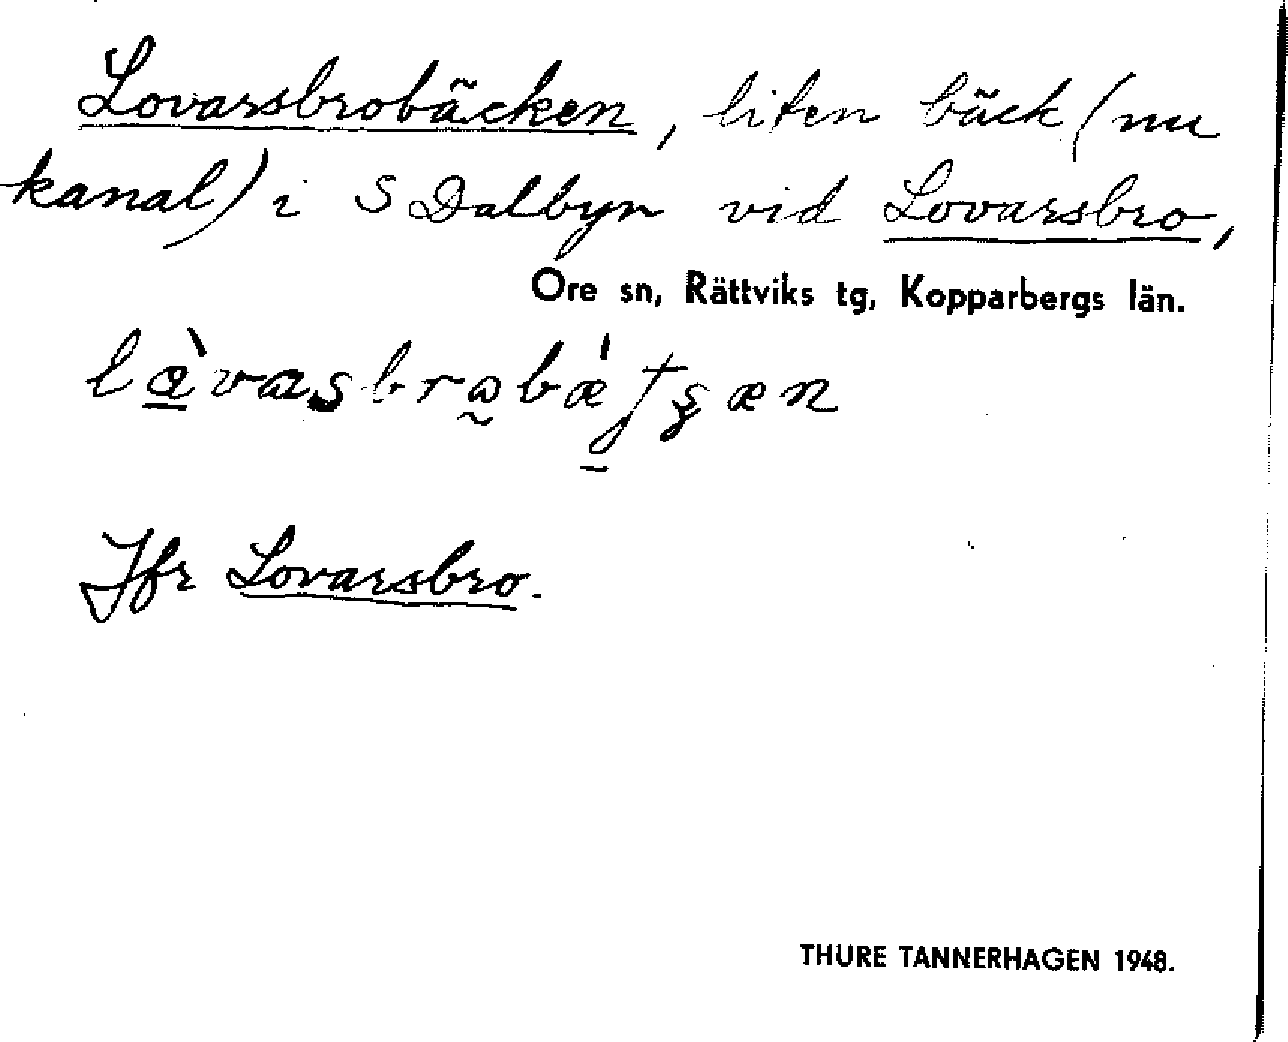 Lovarsbrobäcken, liten bäck (nu
kanal) i S Dalbyn vid Lovarsbro,
Ore sn, Rättviks tg, Kopparbergs län.
Jfr Lovarsbro.
THURE TANNERHAGEN 1948.